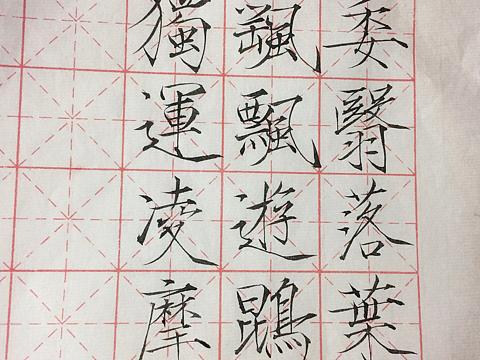 委翳落葉
颻飄遊鵾
獨運凌摩